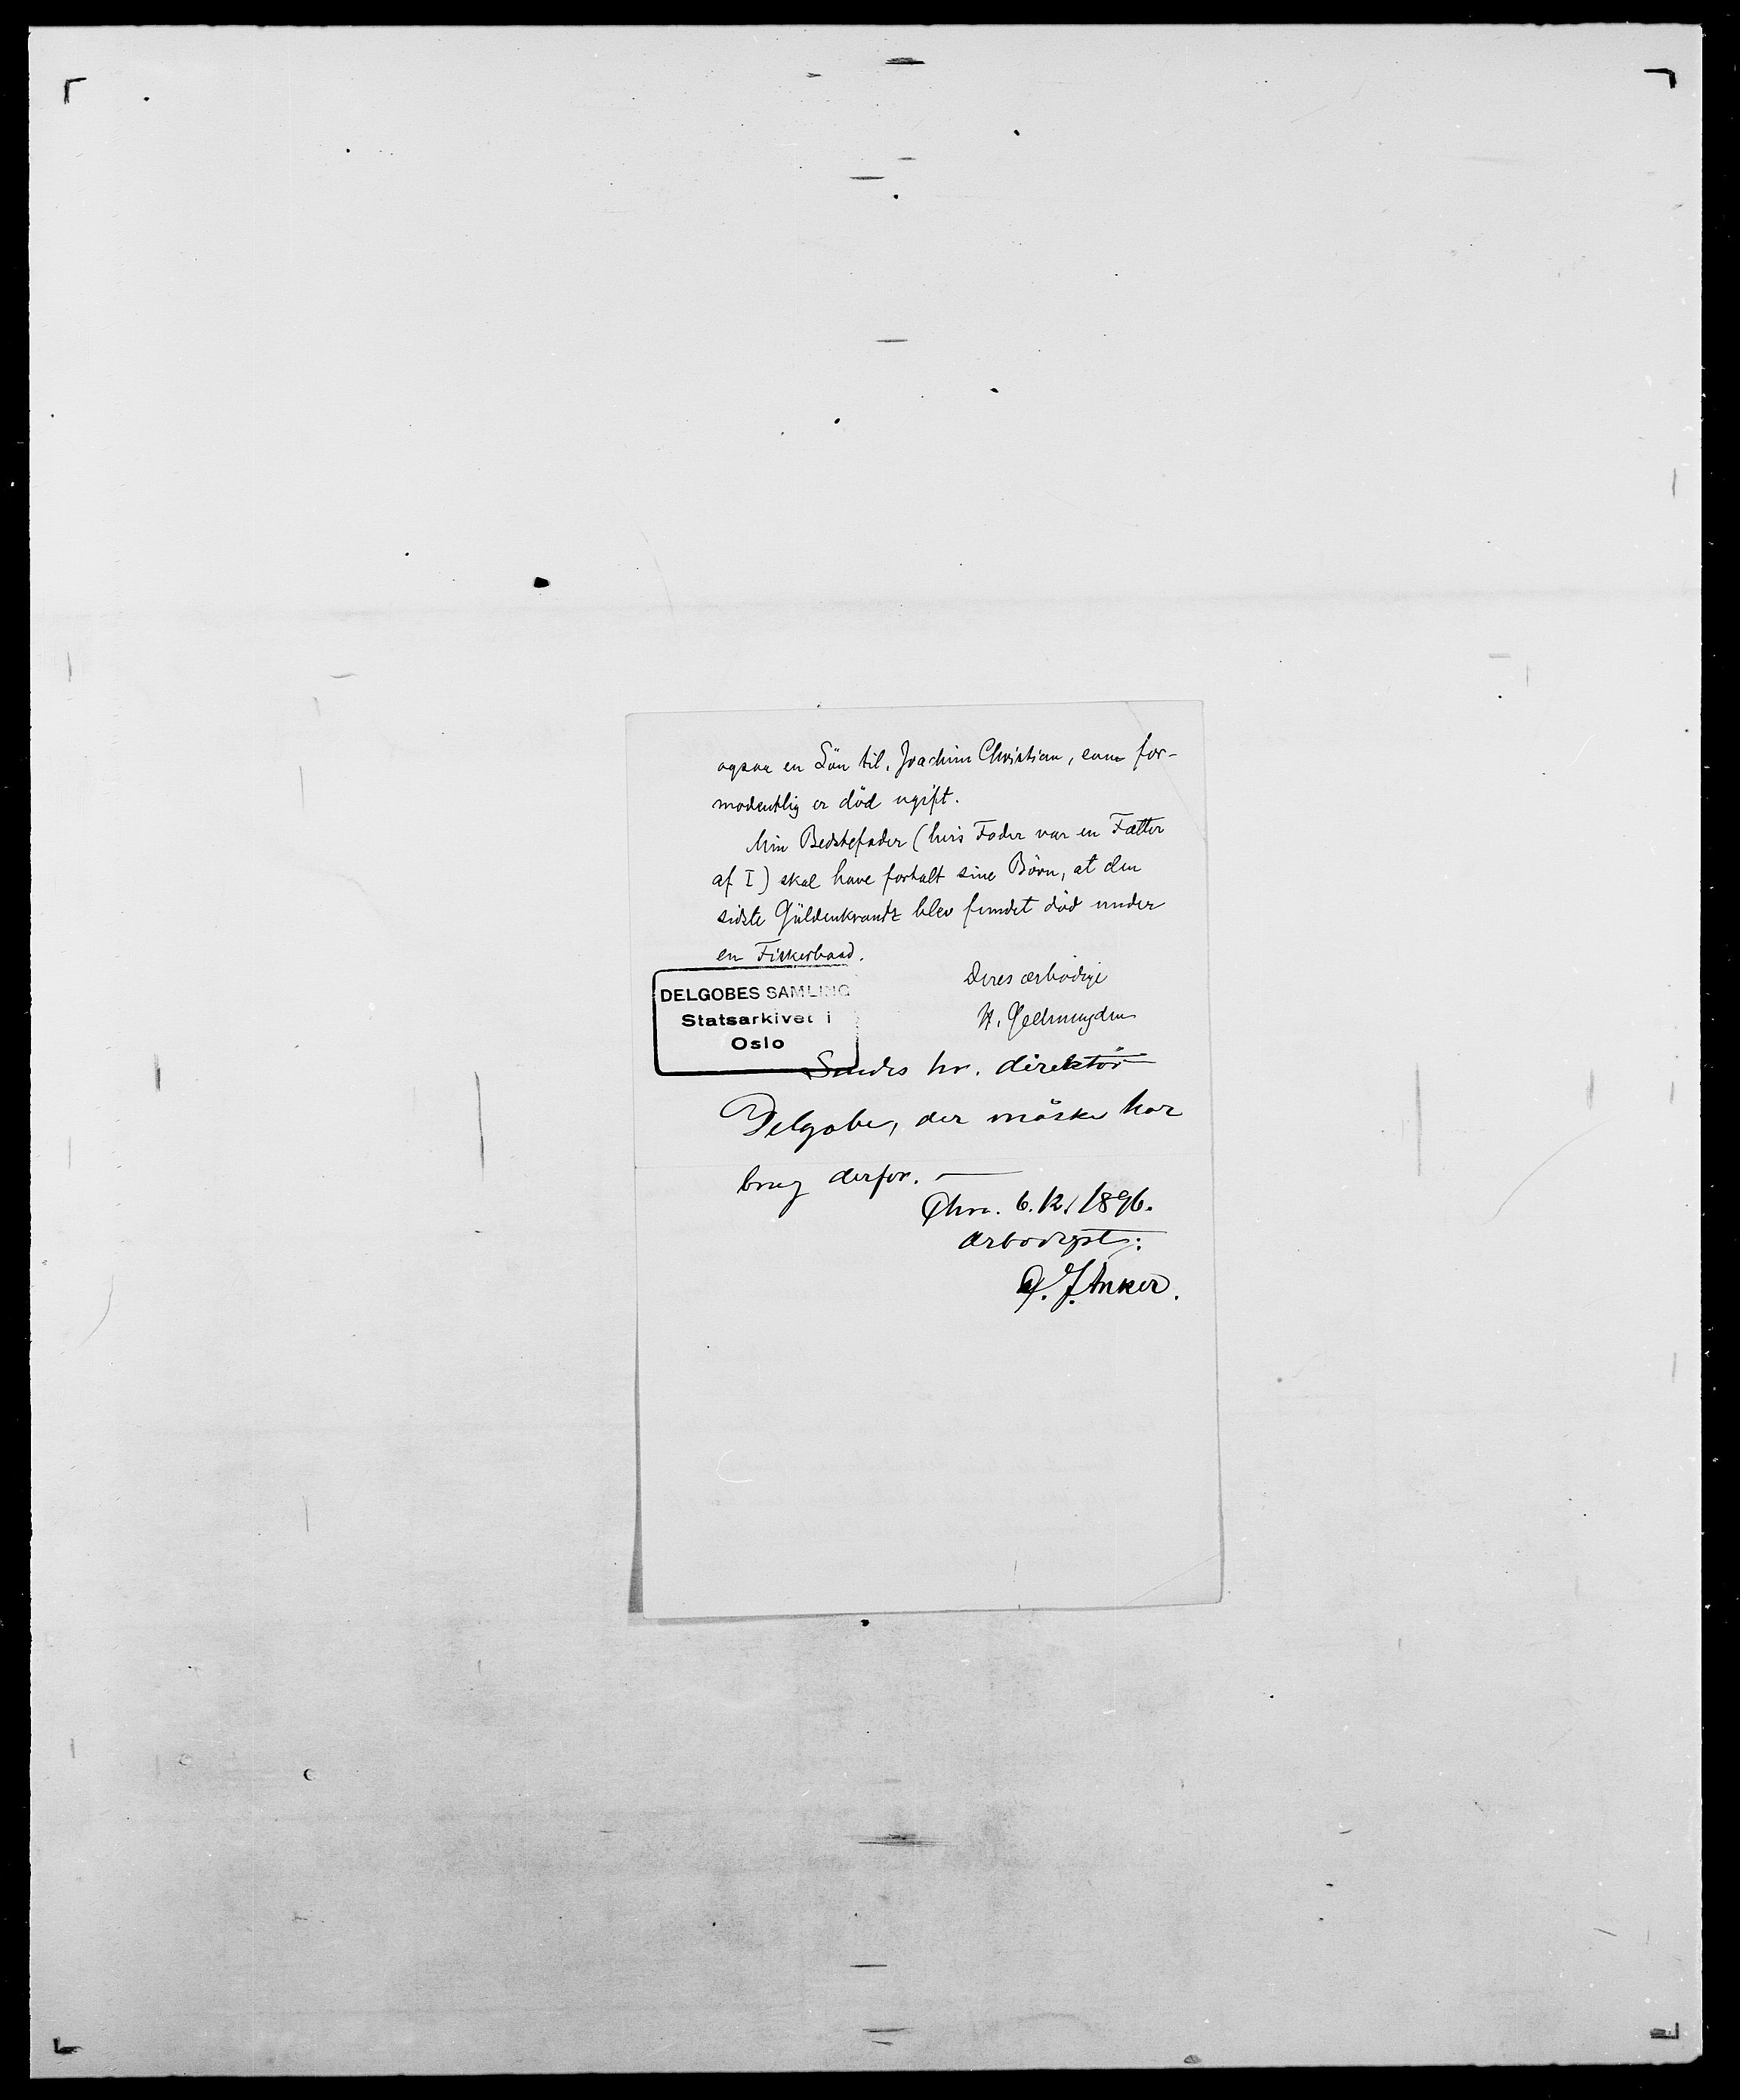 ogsaa en Sön til, Joachim Christian, som for-
modentlig er död ugift.
Min Bedstefader (hvis Fader var en Fætter
af I) skal have fortalt sine Börn, at den
sidste Güldenkrantz blev fundet död under
en Fiskerbaad.
Deres ærbödige
H. Geelmuyden
DELGOBES SAMLING
Statsarkivet i
Oslo
Sendes hr. direktör
Delgobe, der måske har
brug derfor. —
Chra. 6.12.1896.
Ærbödigst:
C. J. Anker.